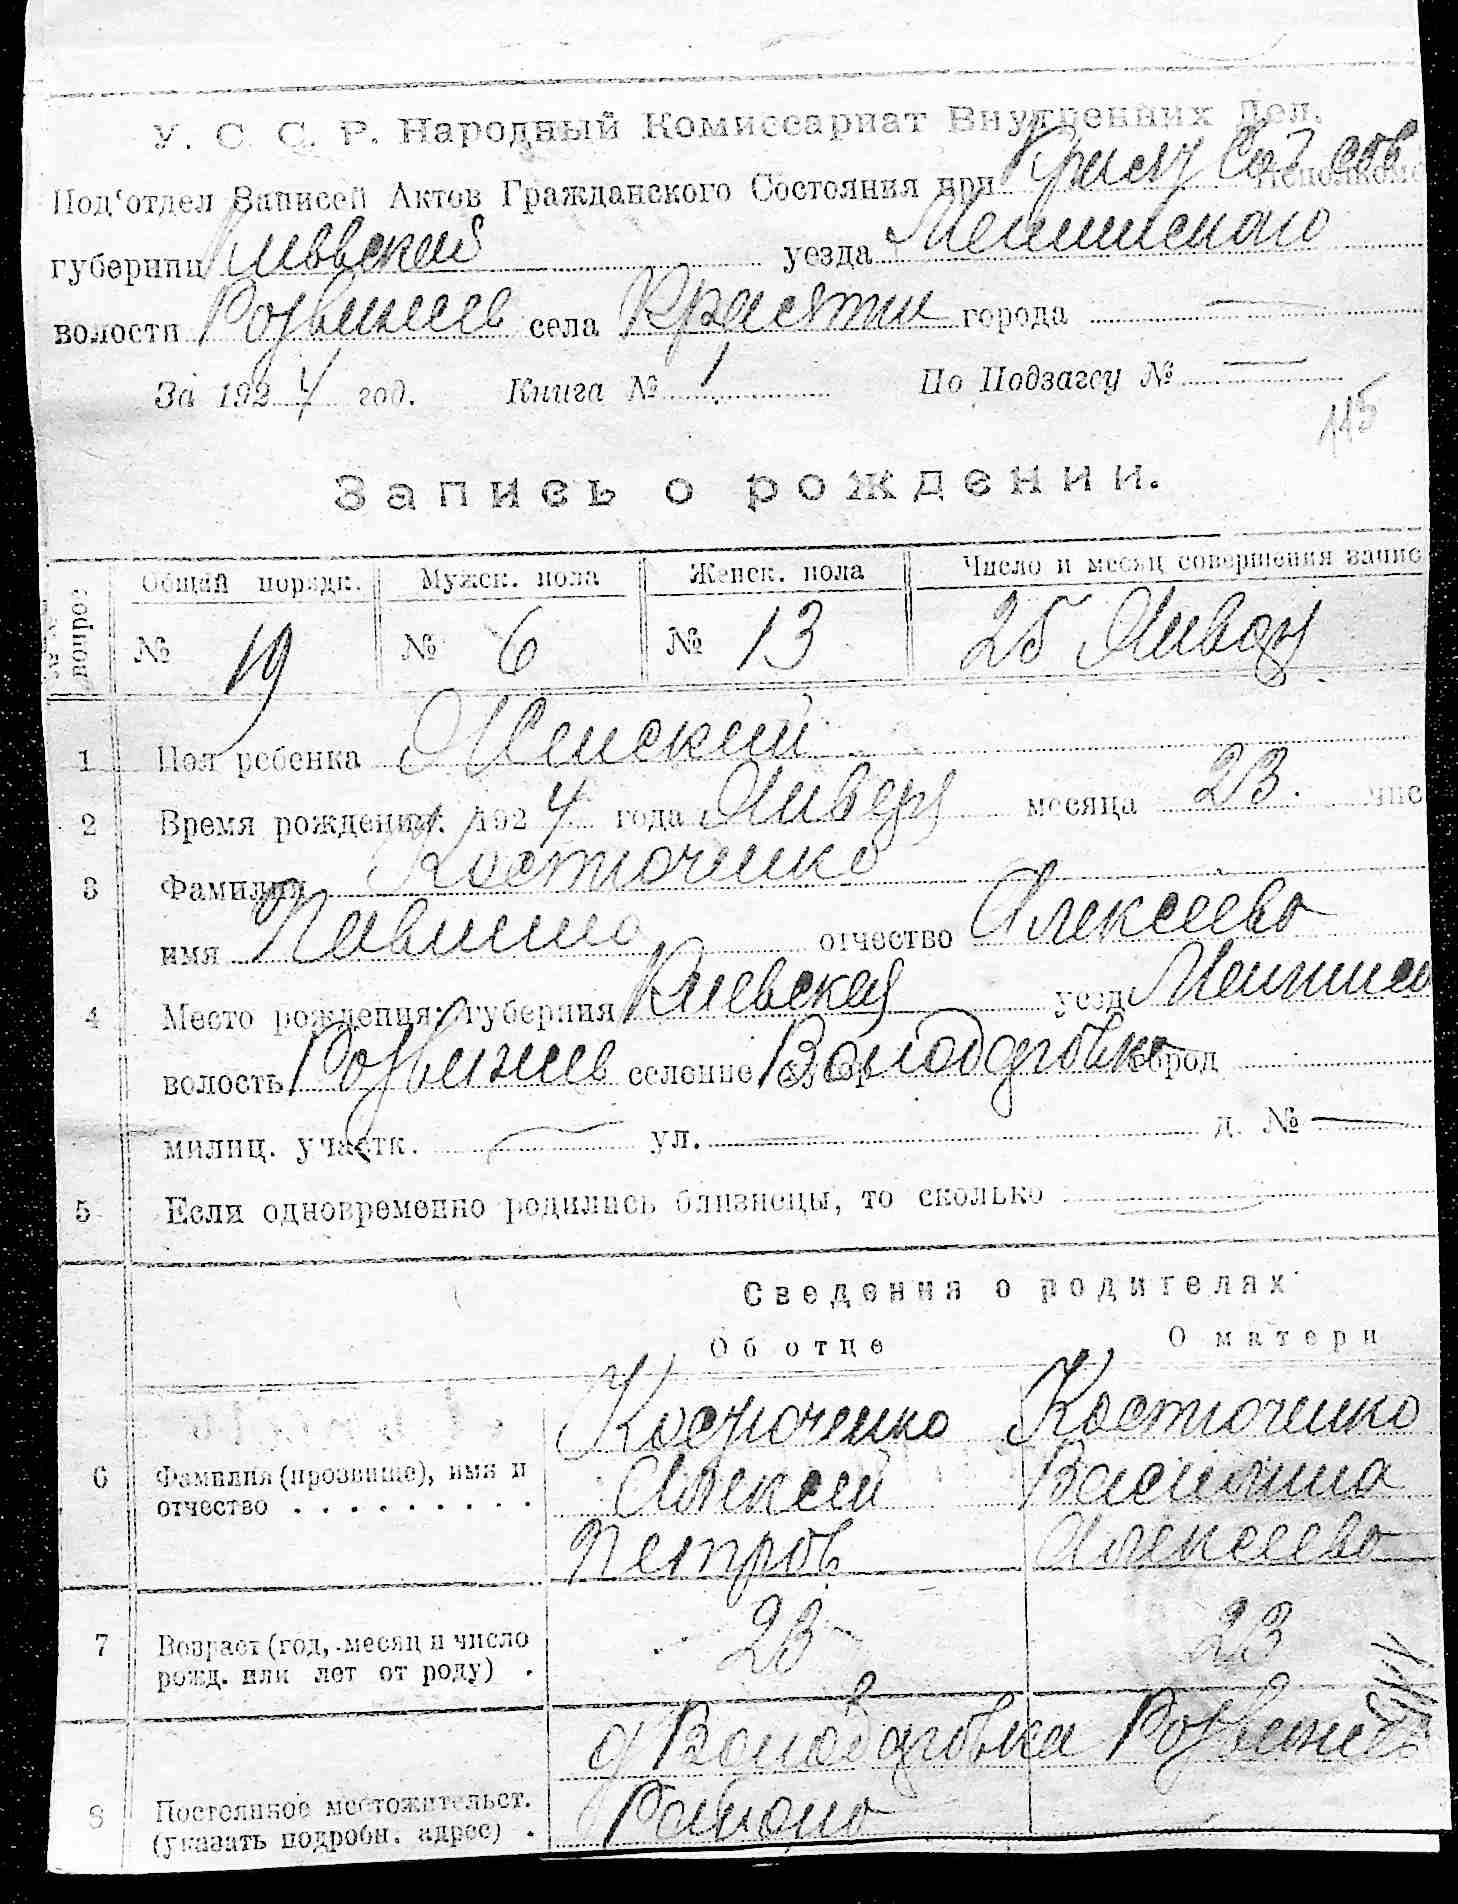 У. С. С. Р. Народный Комиссариат Внутренних Дел.
Под'отдел Записей Актов Гражданского Состояния при
губернии Киевской уезда
волости села города
За 1924 год. Книга № 1 По Подзагсу № —
115
Запись о рождении.
вопрос Общий порядк. Мужск. пола Женск. пола Число и месяц совершения запис
№ 19 № 6 № 13 25 Январ
1 Пол ребенка Женский
2 Время рождения: 1924 года Январ месяца 23. чис
3 Фамилия Костюченко
имя Павлина отчество Алексеева
4 Место рождения: губерния Киевская уезд
волость селение Володарівка город
милиц. участк. — ул. — д. № —
5 Если одновременно родились близнецы, то сколько —
Сведения о родителях
Об отце О матери
Костюченко Костюченко
6 Фамилия (прозвище), имя и Алексей Василина
отчество . . . . . . . . .
Петров Алексеева
7 Возраст (год, месяц и число 23 23
рожд. или лет от роду) .
Володарівка
8 Постоянное местожительст. Района
(указать подробн. адрес) .